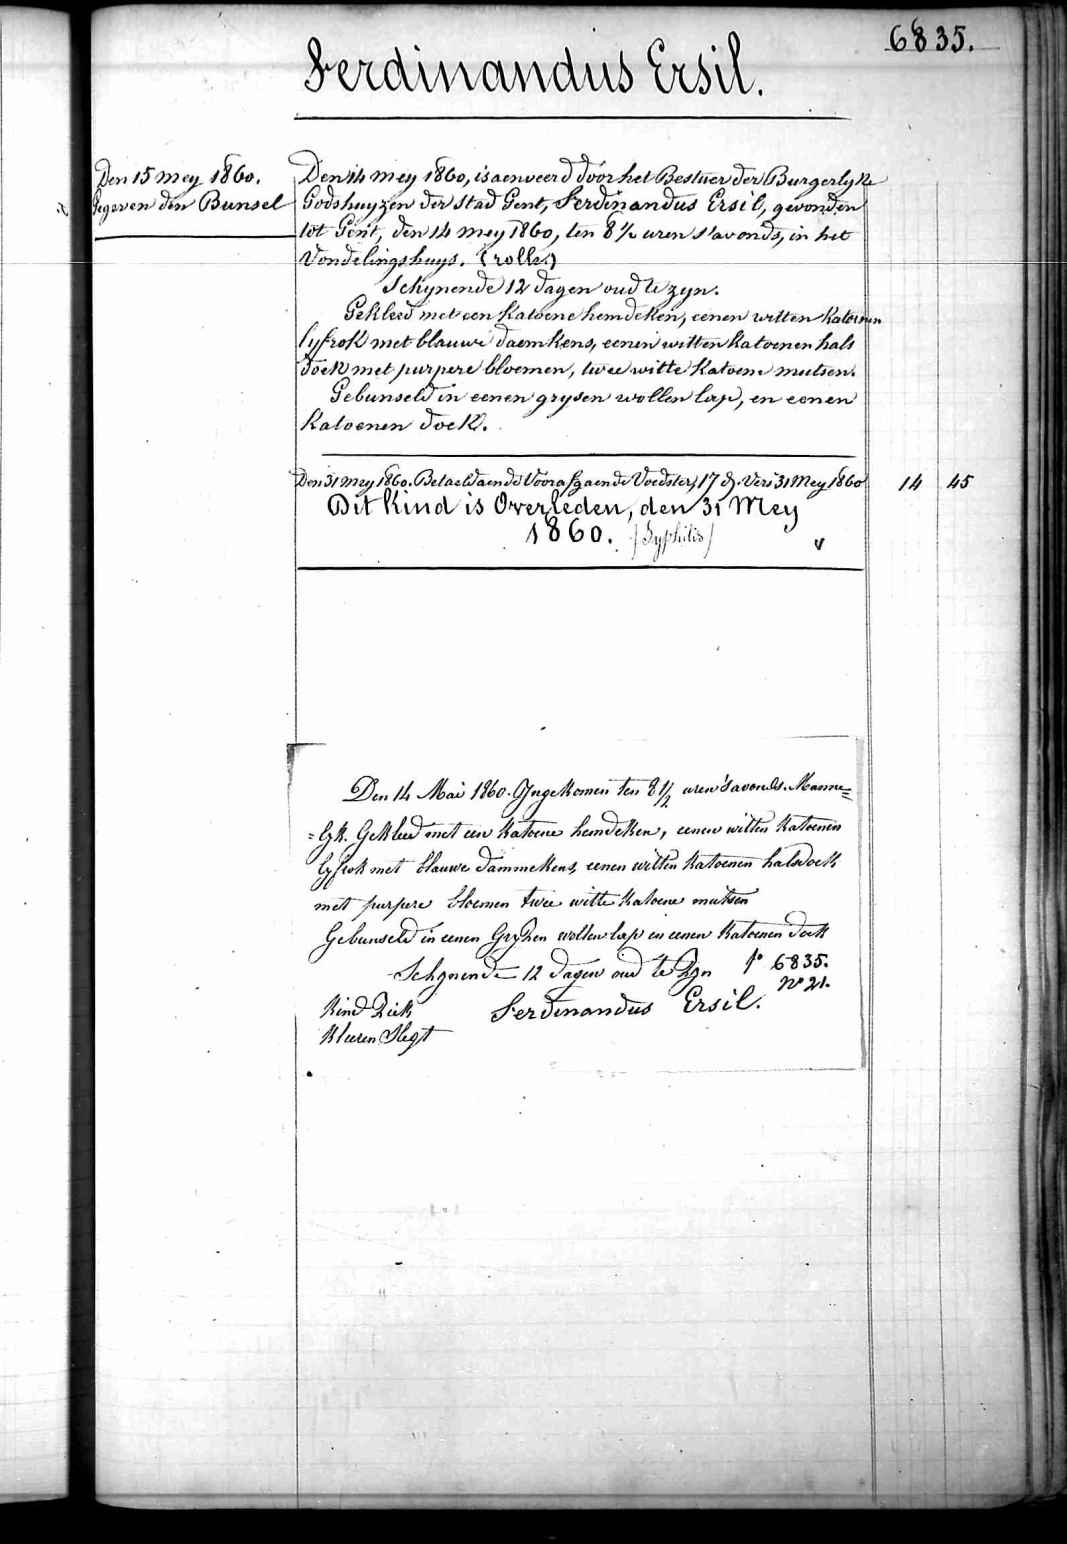 6835.
Ferdinandus Ersil.
Den 15 mey 1860.
Gegeven den Bunsel
Den 14 mey 1860, is aenveerd door het Bestuer der Burgerlyke
Godshuyzen der Stad Gent, Ferdinandus Ersil, gevonden
tot Gent, den 14 mey 1860, ten 8 1/2 uren s'avonds, in het
Vondelingshuys. (rolle.)
Schynende 12 dagen oud te zyn.
Gekleed met een katoene hemdeken, eenen witten katoenen
lyfrok met blauwe daemkens, eenen witten katoenen hals
doek met purpere bloemen, twee witte katoene mutsen.
Gebunseld in eenen grysen wollen lap, en eenen
katoenen doek.
Den 31 mey 1860. Betaeld aen de Voorafgaende Voedster, 17 d. Vers 31 Mey 1860 14 45
Dit Kind is Overleden, den 31 Mey
1860. (Syphilis)
Den 14 Mai 1860. Ingekomen ten 8 1/2 uren 's avonds. Manne=
=lyk. Gekleed met een katoene hemdeken, eenen witten katoenen
lyfrok met blauwe dammekens, eenen witten katoenen halsdoek
met purpere bloemen twee witte katoene mutsen
Gebunseld in eenen Gryzen wollen lap en eenen katoenen doek
Schynende 12 dagen oud te Zyn fo 6835.
No 21.
Kind Ziek Ferdinandus Ersil.
Kleeren Slegt